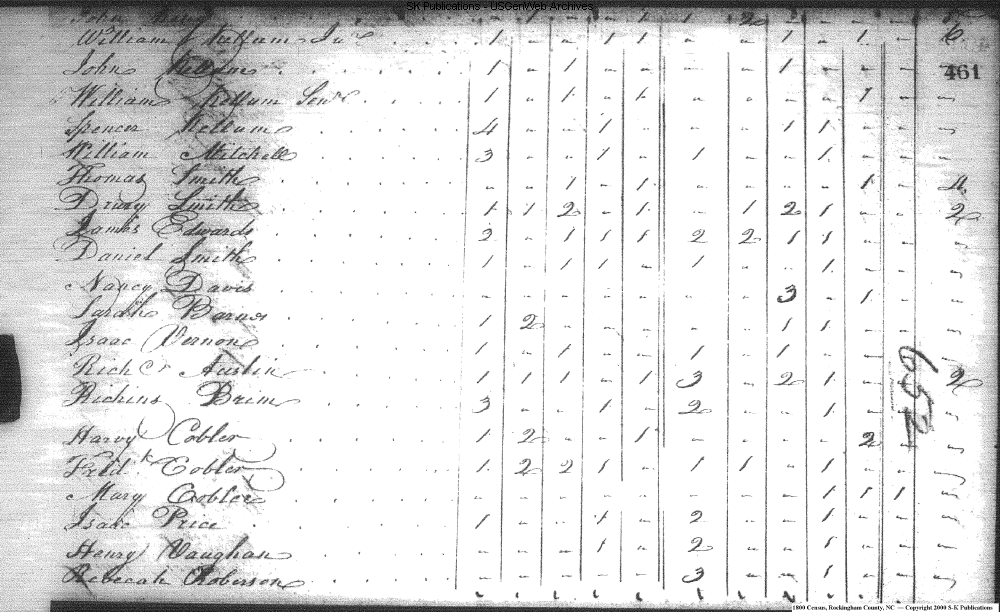 SK Publications - USGenWeb Archives
John
William Kellum Junr 1 - - 1 1 - - 1 - 1 - 6
John Kellum 1 - 1 - - - - 1 - - - -
461
William Kellum Senr 1 - 1 - 1 - - - - 1 - -
Spencer Kellum 4 - - 1 - - - 1 1 - - -
William Mitchell 3 - - 1 - 1 - - 1 - - -
Thomas Smith - - 1 - 1 - - - - 1 - 4
Drury Smith 1 1 2 - 1 - 1 2 1 - - 2
James Edwards 2 - 1 1 1 2 2 1 1 - - -
Daniel Smith 1 - 1 1 - - - - 1 - - -
Nancy Davis - - - - - - - 3 - 1 - -
Sarah Barnes 1 2 - - - - - 1 1 - - -
Isaac Vernon 1 - 1 - - 1 - 1 - - - -
Richd Austin 1 1 1 - 1 3 - 2 1 - - 2
Richins Brim 3 - - 1 - 2 - - 1 - - -
652
Harvy Cobler 1 2 - - 1 - - - - 2 - -
Fredk Cobler 1 2 2 1 - 1 1 - 1 - - -
Mary Cobler - - - - - - - - 1 1 1 -
Isaac Price 1 - - 1 - 2 - - 1 - - -
Henry Vaughan - - - 1 - 2 - - 1 - - -
Rebecah Roberson - - - - - 3 - - 1 - - -
1800 Census, Rockingham County, NC — Copyright 2000 S-K Publications